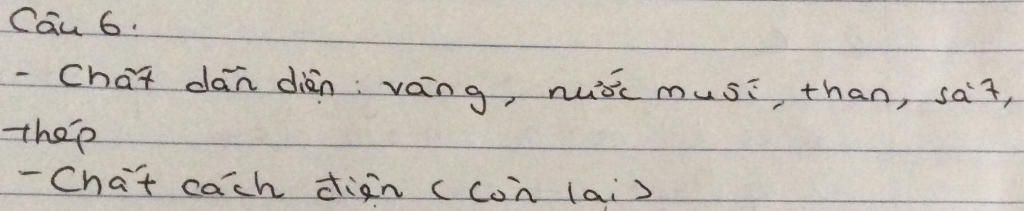 Câu 6.
- Chất dẫn diện: vãng, nước musí, than, sắt,
thép
- Chất cách điện (còn lại)